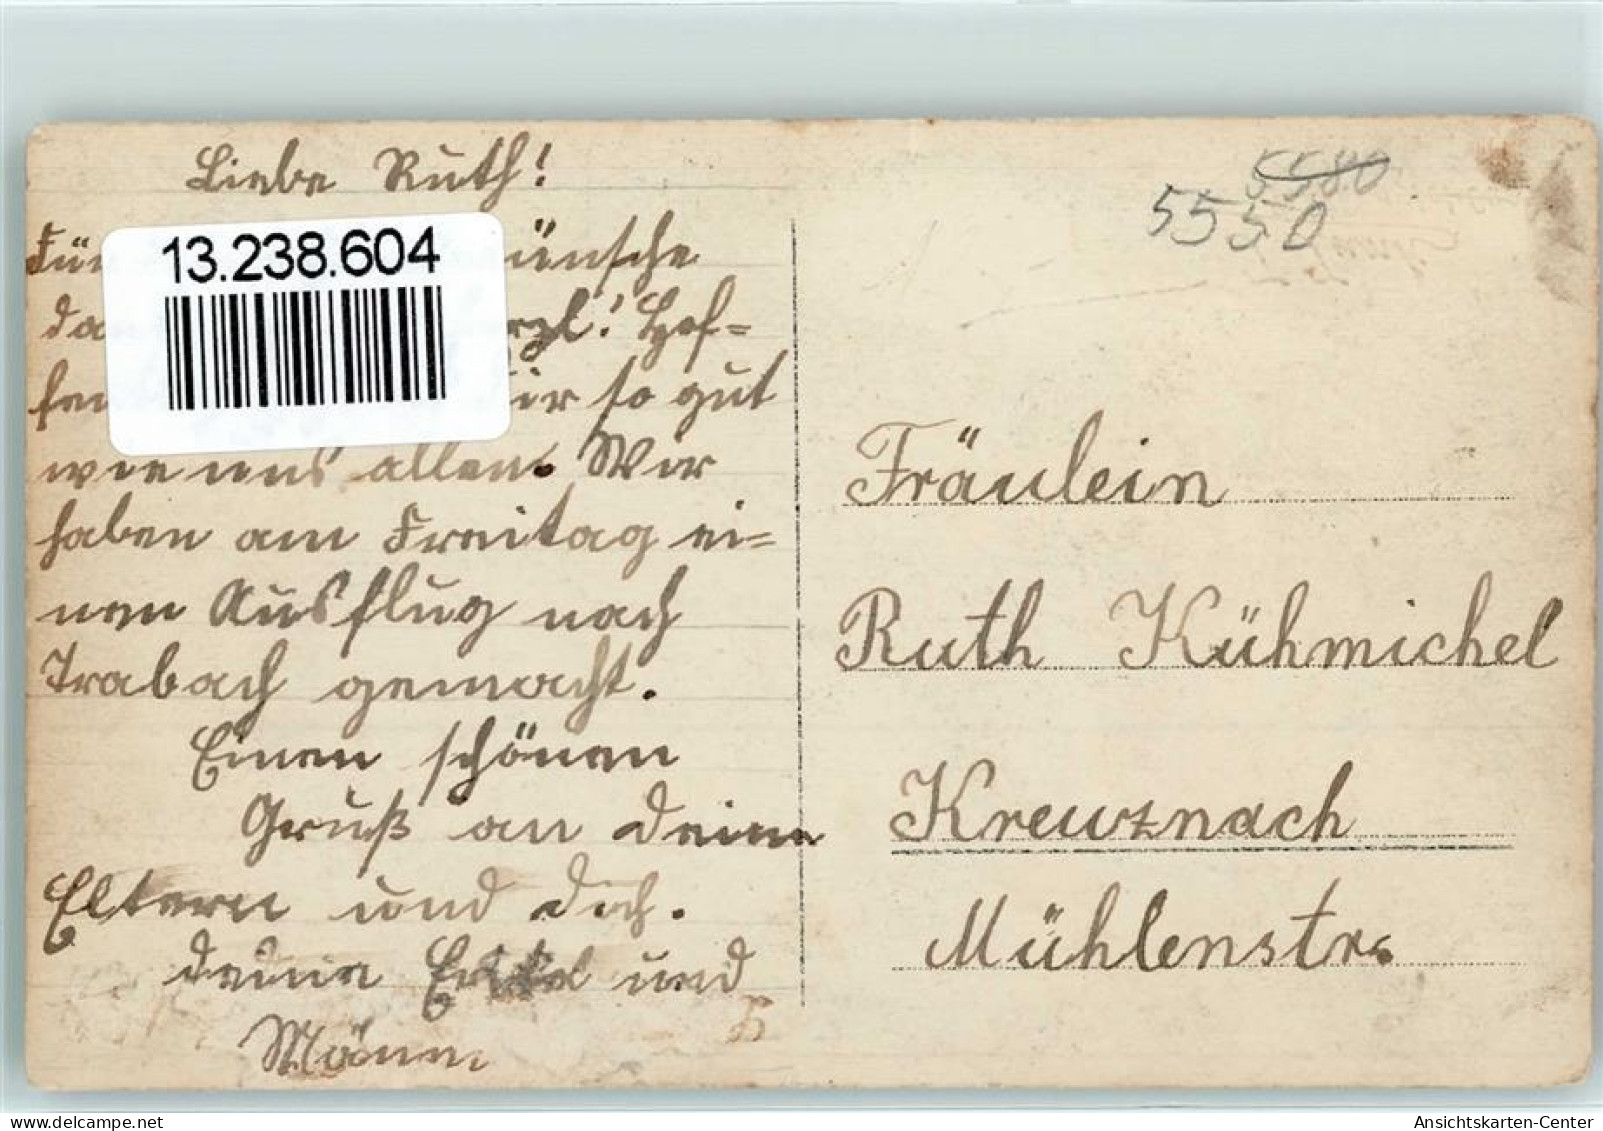 Liebe Ruth!
Für ünsche
da erzl.! Hof-
fen dir so gut
wie uns allen. Wir
haben am Freitag ei-
nen Ausflug nach
Trabach gemacht.
Einen schönen
Gruß an deine
Eltern und dich.
deine und
13.238.604
5580
5550
Fräulein
Ruth Kühmichel
Kreuznach
Mühlenstr.
Ansichtskarten-Center